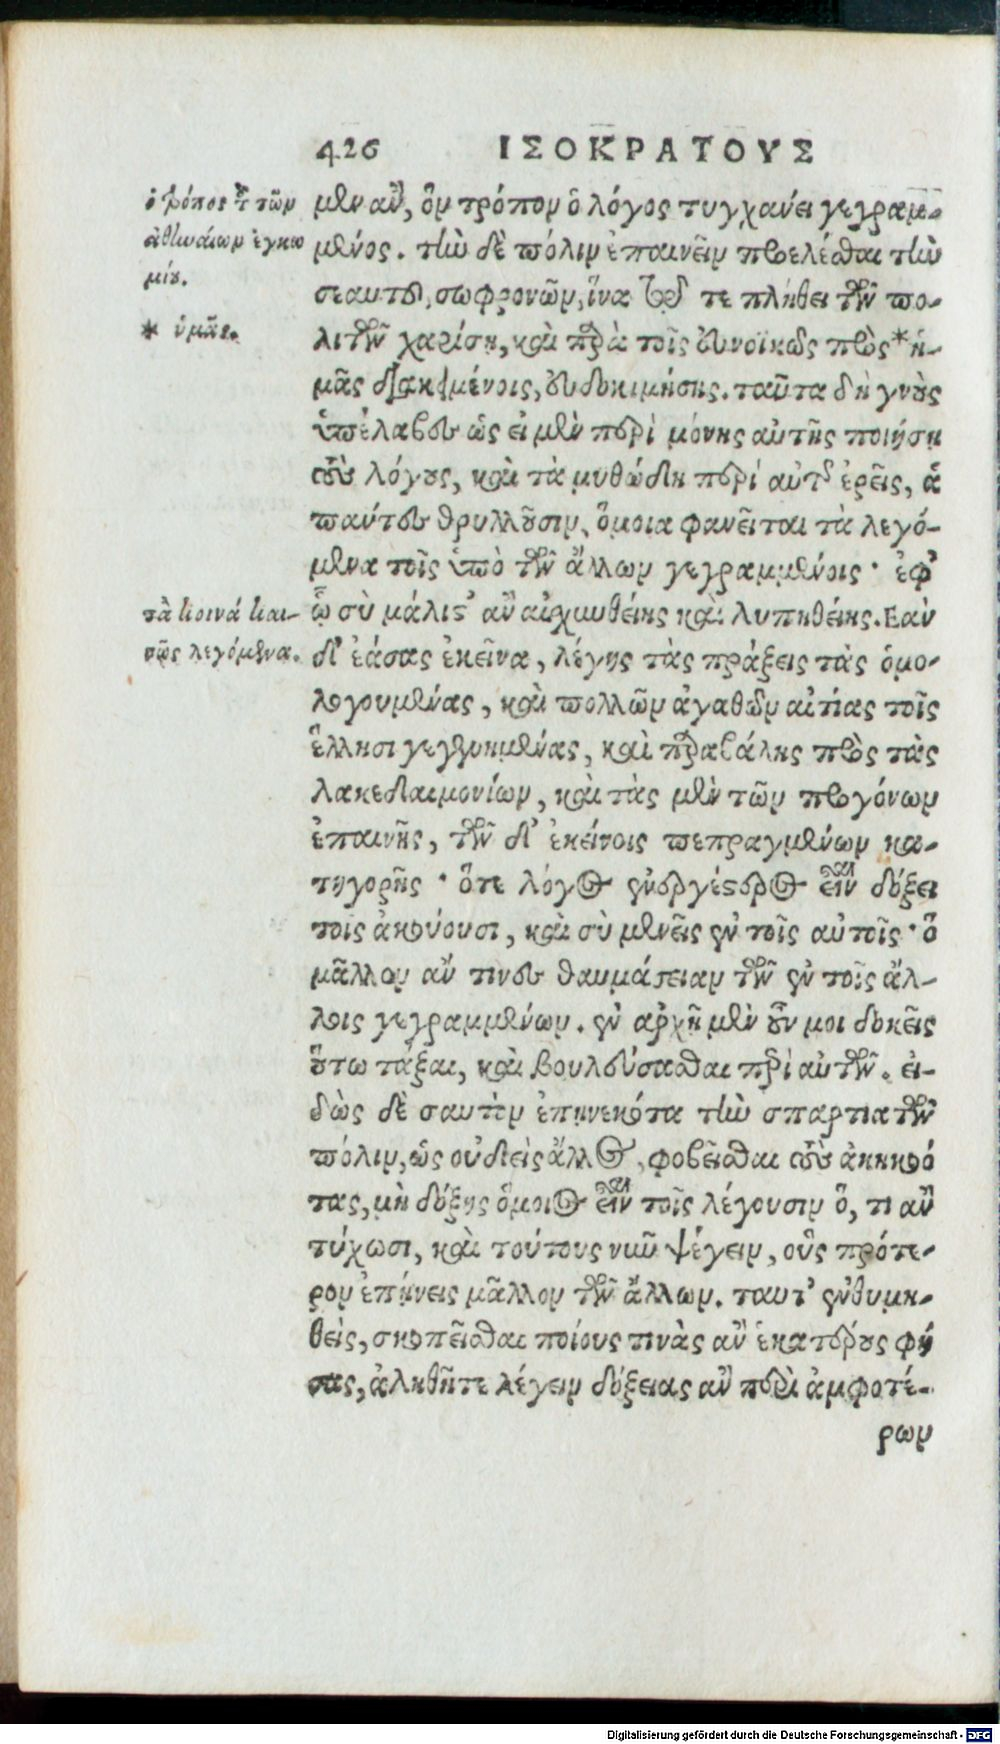 426 ΙΣΟΚΡΑΤΟΥΣ
ὁ τρόπος τ τῶν
ἀθηναίων ἐγκω
μίου.
* ὑμᾶς.
τὰ κοινὰ και-
νῶς λεγόμενα.
μεν ἂν, ὃν τρόπον ὁ λόγος τυγχάνει γεγραμ-
μένος. τὴν δὲ πόλιν ἐπαινεῖν προελέσθαι τὴν
σεαυτοῦ, σωφρονῶν, ἵνα τό τε πλήθει τῶν πο-
λιτῶν χαρίσῃ, καὶ παρὰ τοῖς εὐνοϊκῶς πρὸς * ἡ-
μᾶς διακειμένοις, εὐδοκιμήσῃς. ταῦτα δὴ γνοὺς
ὑπέλαβες ὡς εἰ μὲν περὶ μόνης αὐτῆς ποιήσῃ
τοὺς λόγους, καὶ τὰ μυθώδη περὶ αὐτῆς ἐρεῖς, ἃ
πάντες θρυλλοῦσιν, ὅμοια φανεῖται τὰ λεγό-
μενα τοῖς ὑπὸ τῶν ἄλλων γεγραμμένοις· ἐφ᾽
ᾧ σὺ μάλιστ᾽ ἂν αἰσχυνθείης καὶ λυπηθείης. Εὰν
δ᾽ ἐάσας ἐκεῖνα, λέγῃς τὰς πράξεις τὰς ὁμο-
λογουμένας, καὶ πολλῶν ἀγαθῶν αἰτίας τοῖς
ἕλλησι γεγενημένας, καὶ παραβάλῃς πρὸς τὰς
λακεδαιμονίων, καὶ τὰς μὲν τῶν προγόνων
ἐπαινῇς, τῶν δ᾽ ἐκείνοις πεπραγμένων κα-
τηγορῇς· ὅτε λόγος ἐνεργέστερος εἶναι δόξει
τοῖς ἀκούουσι, καὶ σὺ μενεῖς ἐν τοῖς αὐτοῖς· ὃ
μᾶλλον ἄν τινες θαυμάσειαν τῶν ἐν τοῖς ἄλ-
λοις γεγραμμένων. ἐν ἀρχῇ μὲν οὖν μοι δοκεῖς
οὕτω τάξαι, καὶ βουλεύσασθαι περὶ αὐτῶν. εἰ-
δὼς δὲ σαυτὸν ἐπῃνεκότα τὴν σπαρτιατῶν
πόλιν, ὡς οὐδεὶς ἄλλος, φοβεῖσθαι τοὺς ἀκηκοό
τας, μὴ δόξῃς ὅμοιος εἶναι τοῖς λέγουσιν ὅ, τι ἂν
τύχωσι, καὶ τούτους νῦν ψέγειν, οὓς πρότε-
ρον ἐπῄνεις μᾶλλον τῶν ἄλλων. ταυτ᾽ ἐνθυμη-
θεὶς, σκοπεῖσθαι ποίους τινὰς ἂν ἑκατέρους φή
σας, ἀληθῆ τε λέγειν δόξειας ἂν περὶ ἀμφοτέ-
ρων
Digitalisierung gefördert durch die Deutsche Forschungsgemeinschaft - DFG